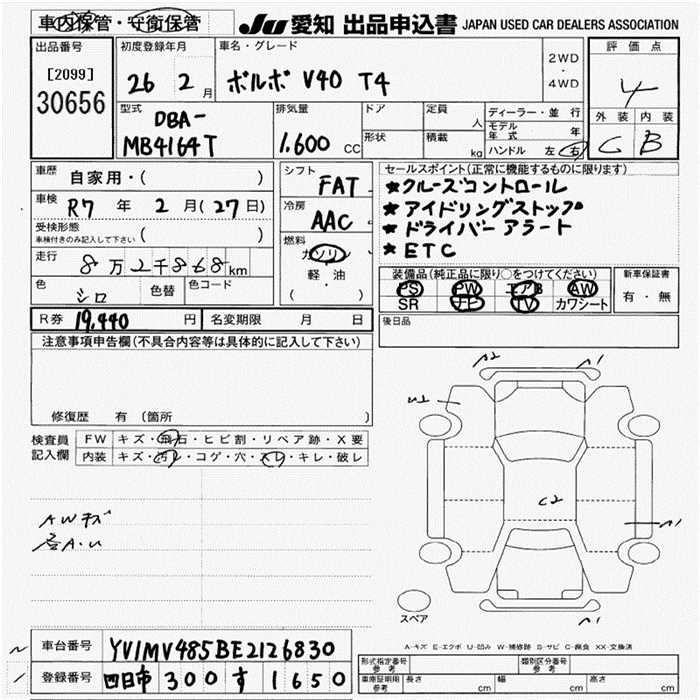 車内保管・安衛保管
JU 愛知 出品申込書 JAPAN USED CAR DEALERS ASSOCIATION
出品番号
[2099]
30656
初度登録年月
26 2 月
車名・グレード
ボルボ V40 T4
2WD
・
4WD
評価点
4
外装 内装
C B
型式
DBA-
MB4164T
排気量
1.600 cc
ドア
形状
定員
人
積載
kg
ディーラー・並行
モデル年式 年
ハンドル 左 右
車歴
自家用・( )
車検
R7 年 2 月(27日)
受検形態
車検付きのみ記入して下さい ( )
走行
8万2千868km
色
シロ
色替
色コード
シフト
FAT
冷房
AAC
燃料
ガソリン
軽・油
( )
セールスポイント(正常に機能するものに限ります)
★クルーズコントロール
★アイドリングストップ
★ドライバーアラート
★ETC
装備品(純正品に限り○をつけてください)
PS PW エアB AW
SR ナビ TV カワシート
新車保証書
有・無
R券 19,440 円
名変期限 月 日
後日品
注意事項申告欄(不具合内容等は具体的に記入して下さい)
修復歴 有(箇所 )
検査員記入欄
FW キズ・飛石・ヒビ割・リペア跡・X要
内装 キズ・汚レ・コゲ・穴・スレ・キレ・破レ
AWキズ
A2
A1
C2
A1
A1
スペア
A-キズ E-エクボ U-凹み W-補修跡 S-サビ C-腐食 XX-交換済
車台番号
YV1MV485BE2126830
登録番号
四日市 300 す 1650
形式指定番号
参考
類別区分番号
参考
車庫証明用
参考
長さ cm
幅 cm
高さ cm